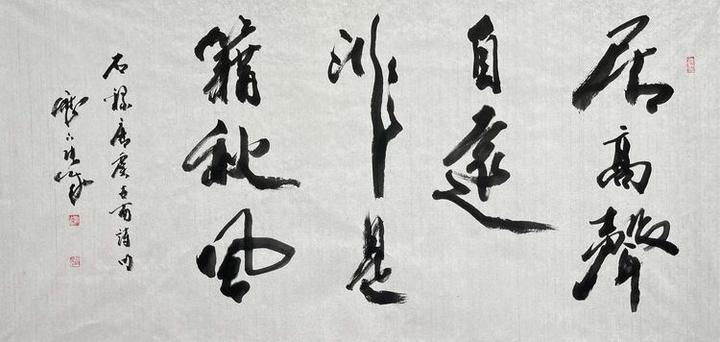 居高聲
自遠
非是
籍秋風
右錄唐虞世南詩句